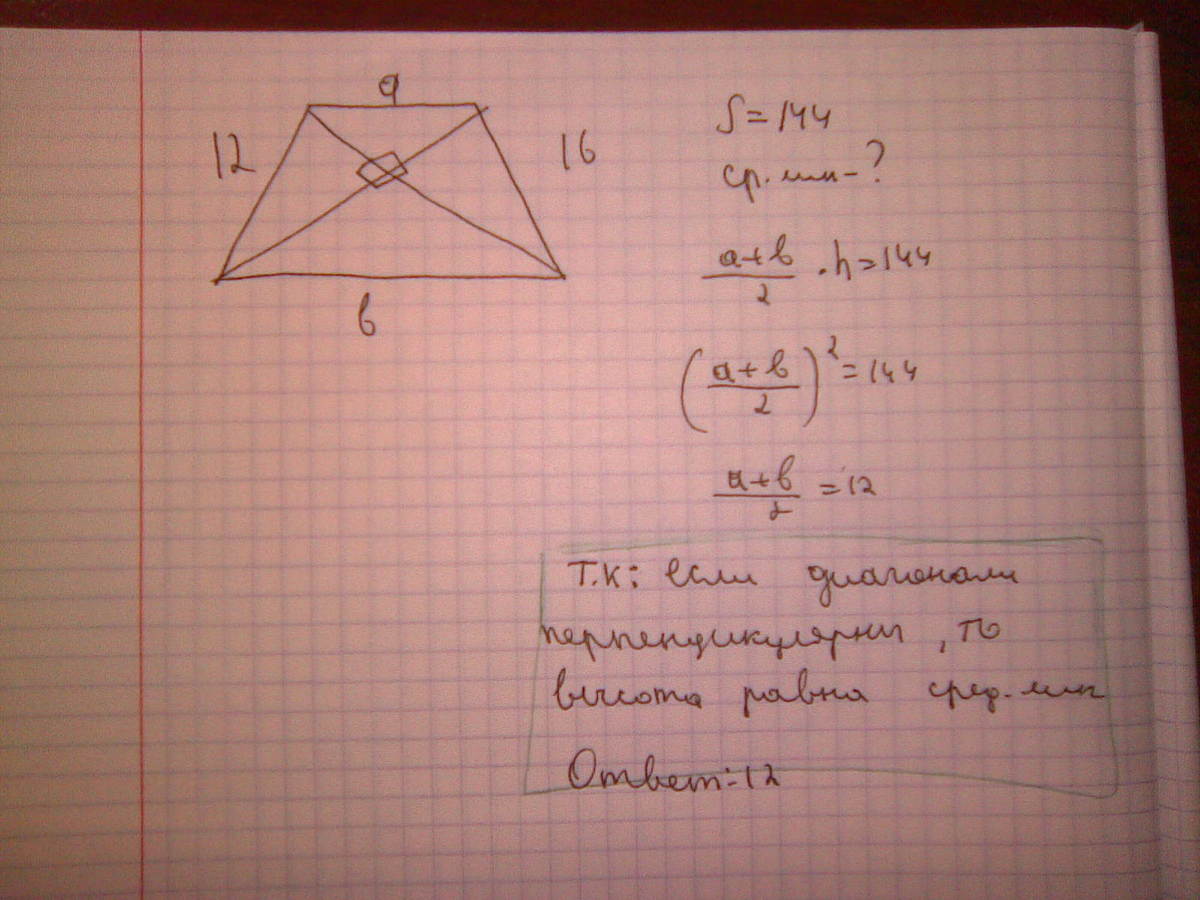 a
12
16
в
S=144
ср. лин-?
a+b/2 · h=144
(a+b/2)²=144
a+b/2 =12
Т.К: если диагонали
перпендикулярны, то
высота равна сред. лин
Ответ: 12